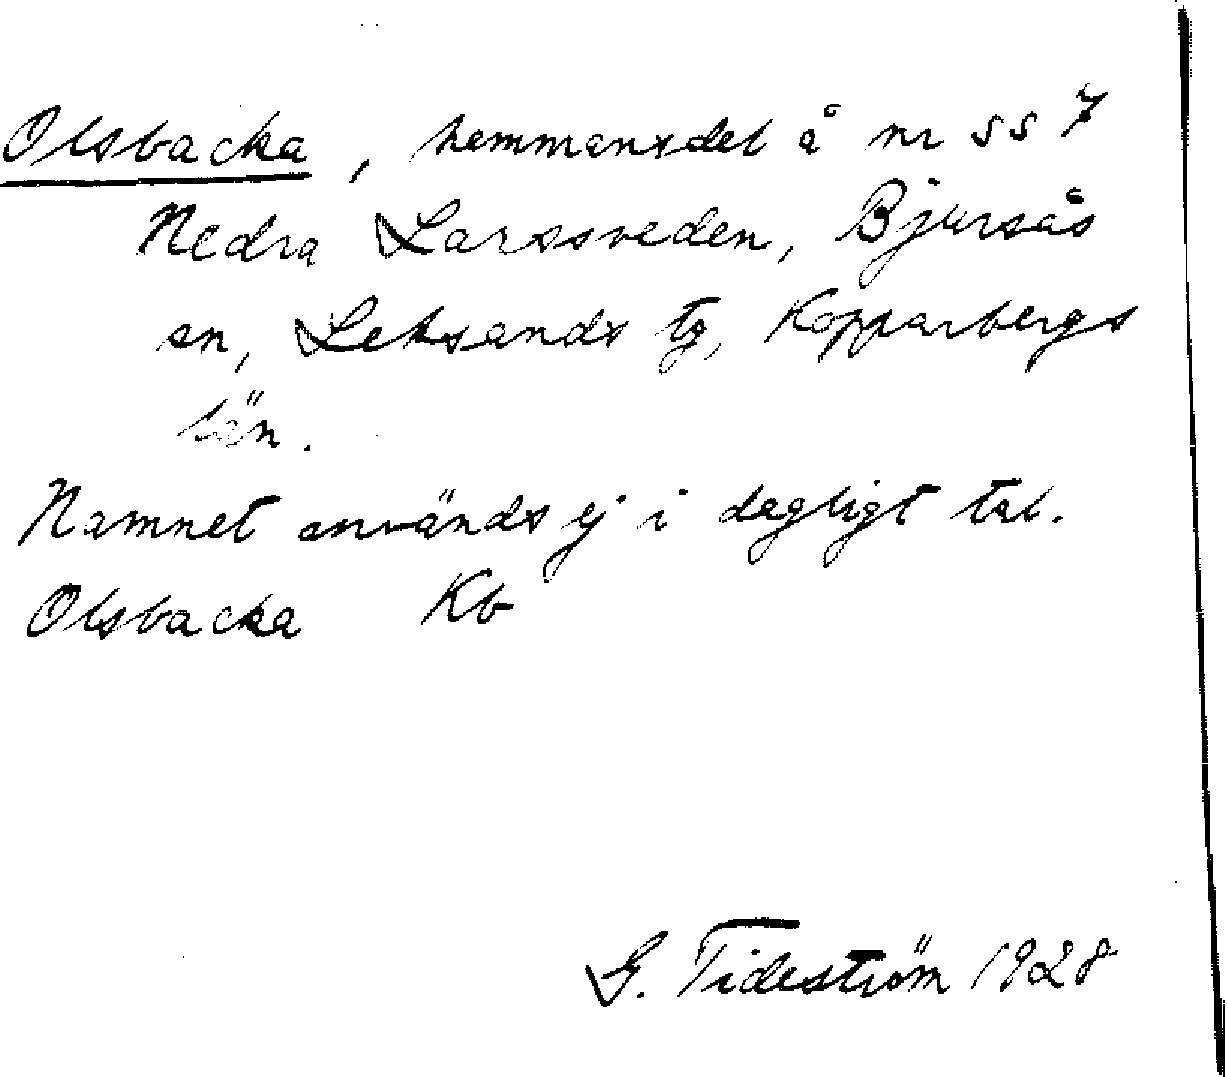 Olsbacka, hemmansdel å nr ss 7
Nedra Larssveden, Bjursås
sn, Leksands tg, Kopparbergs
län.
Namnet används ej i dagligt tal.
Olsbacka Kb
G. Tideström 1928